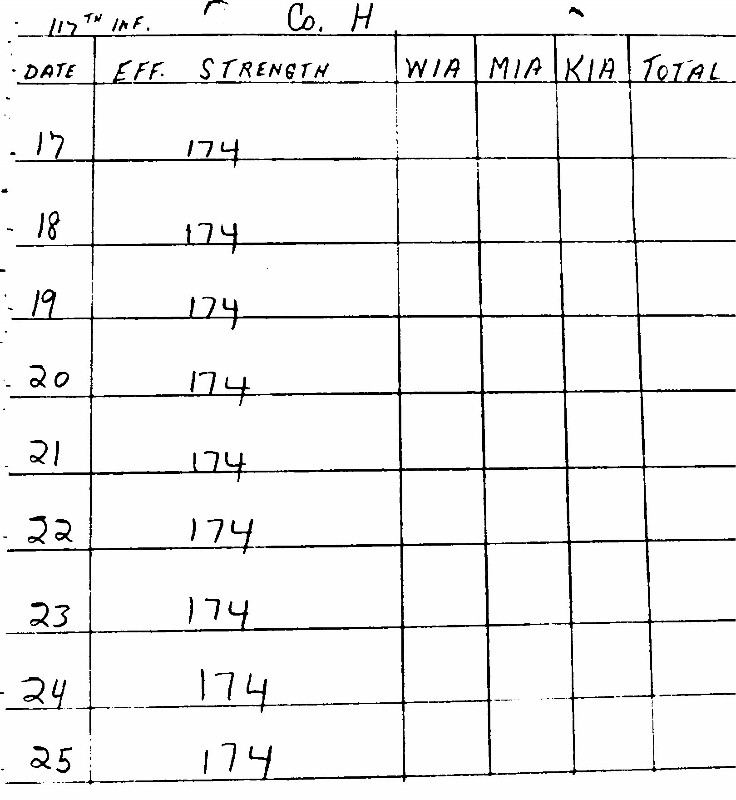 117TH INF. Co. H
DATE EFF. STRENGTH WIA MIA KIA TOTAL
17 174
18 174
19 174
20 174
21 174
22 174
23 174
24 174
25 174